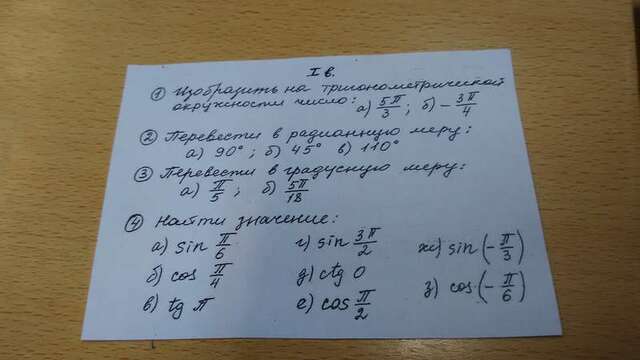 I в.
① Изобразить на тригонометрической
окружности число: а) 5π/3 ; б) -3π/4
② Перевести в радианную меру:
а) 90° ; б) 45° в) 110°
③ Перевести в градусную меру:
а) π/5 ; б) 5π/18
④ Найти значение:
а) sin π/6 г) sin 3π/2 ж) sin (-π/3)
б) cos π/4 д) ctg 0 з) cos (-π/6)
в) tg π е) cos π/2